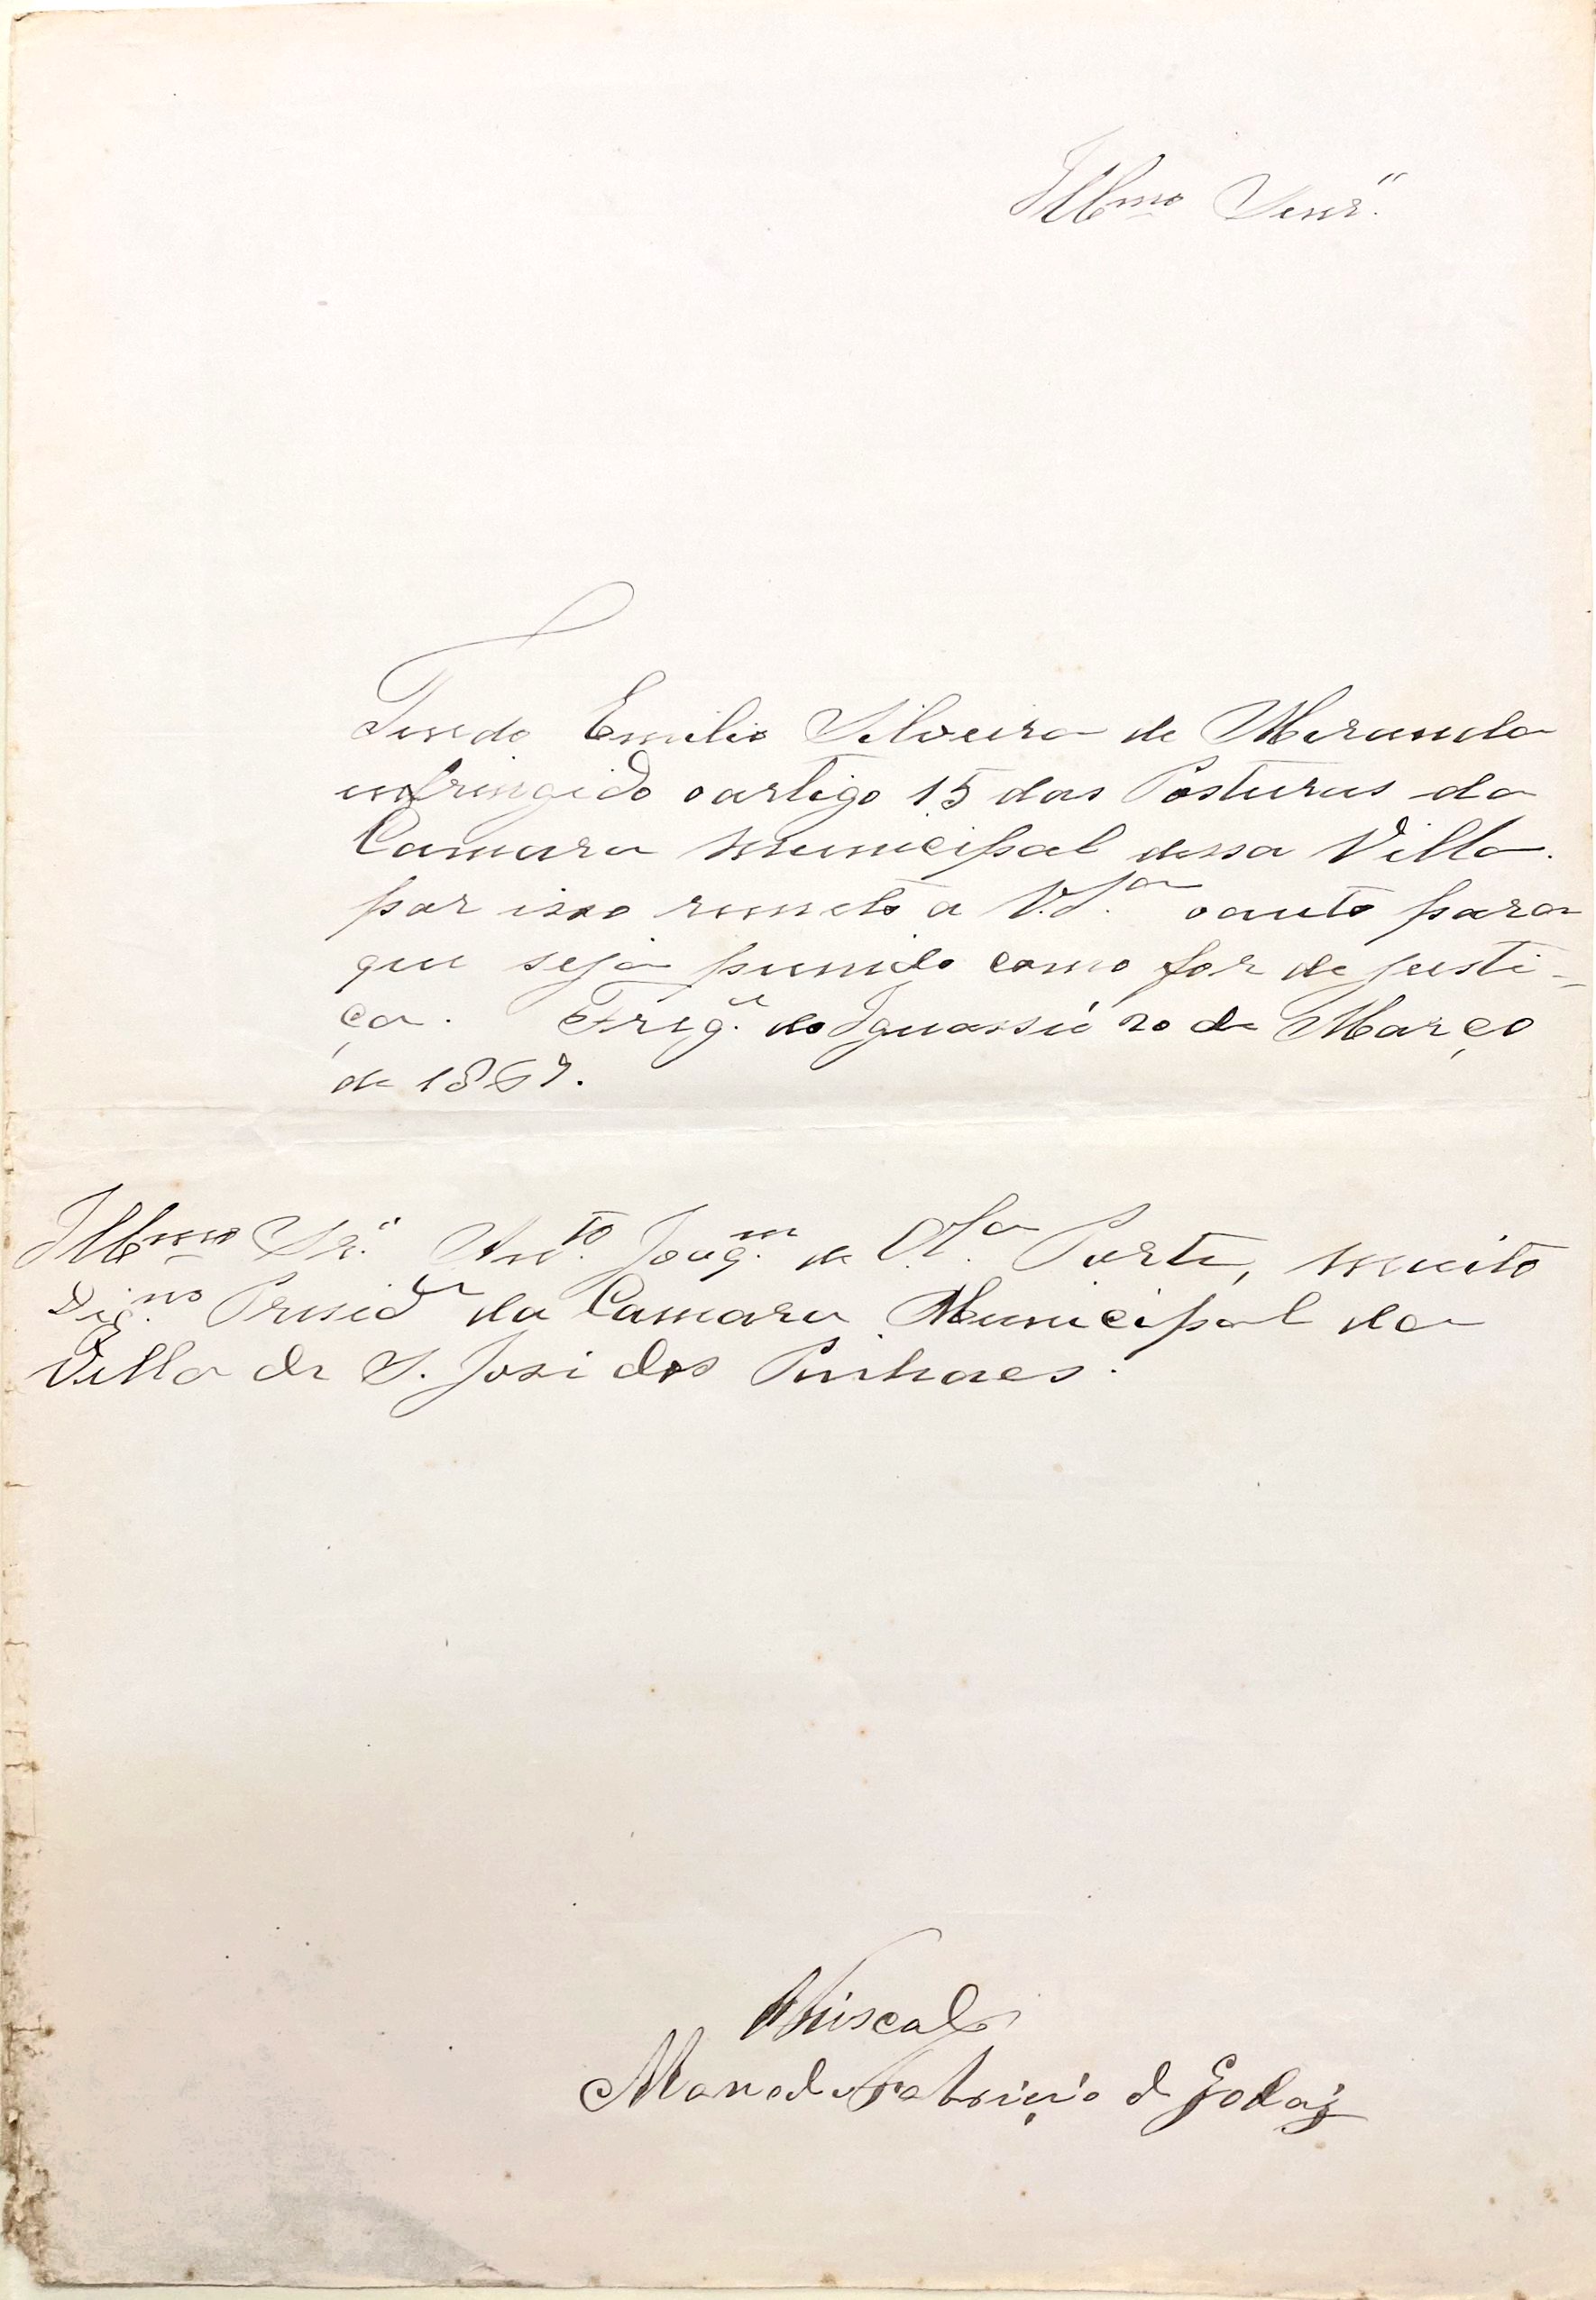 Illmo Senr.
Tendo Emilio Silveira de Miranda
infringido o artigo 15 das Posturas da
Camara Municipal dessa Villa.
por isso remeto a V.Sa o auto para
que seja punido como for de justi-
ça. Freg.a do Iguassú 20 de Março
de 1867.
Illmo Sr. Anto. Joaqm. de Porte, muito
Dig.no Presid.e da Camara Municipal da
Villa de S. José dos Pinhaes.
Fiscal
Manoel Fabricio de Godoi